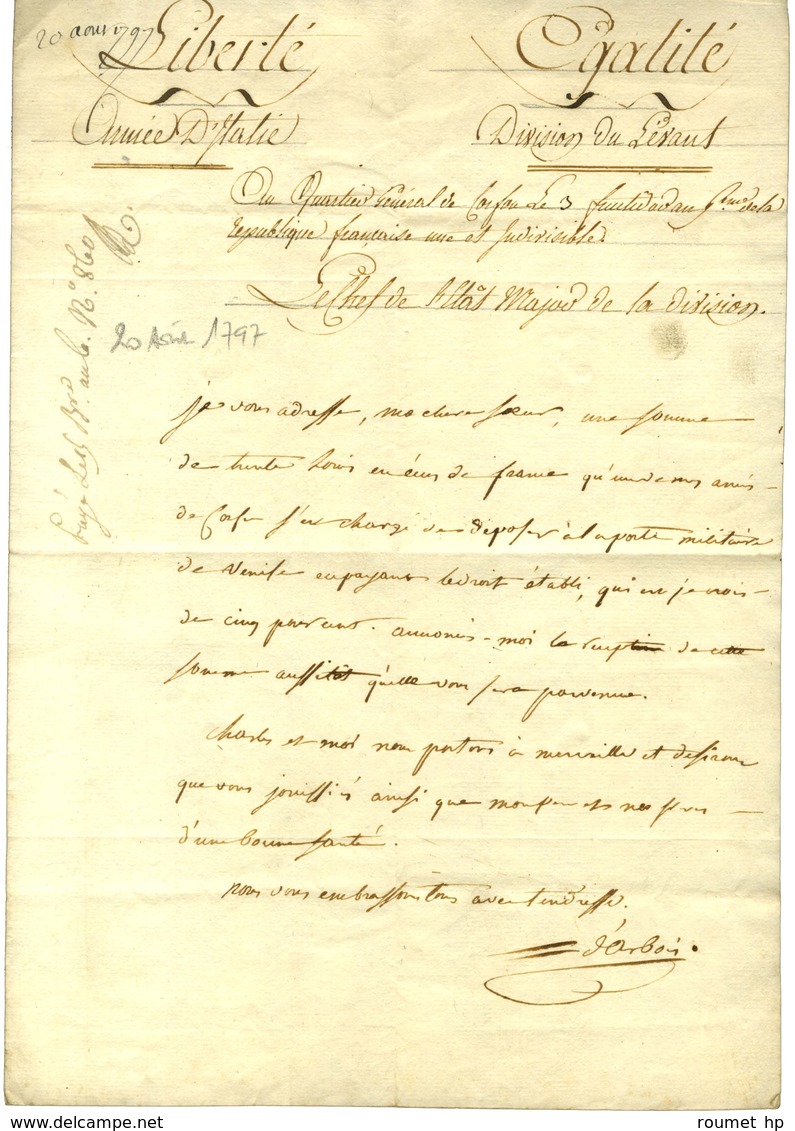 20 aout 1797
Liberté Egalité
Armée D'Italie Division du Lévant
Au Quartier Général de Corfou Le 3 fructidor an 5.eme de la
république française une et Indivisible
Le Chef de l'Etat Major de la division.
20 Août 1797
N.o 860
je vous adresse, ma chere sœur, une somme
de trente Louis en écus de france qu'un de mes amis
de Corfu s'est chargé de déposer à la poste militaire
de Venise en payant le droit établi, qui est je crois
de cinq pour cent. annoncés-moi la reception de cette
somme aussitot qu'elle vous sera parvenue.
Charles et moi nous portons à merveille et desirons
que vous jouissiés ainsi que mon frere et nos sœurs
d'une bonne santé.
nous vous embrassons tous avec tendresse.
d'Arbois.
roumet hp
www.delcampe.net